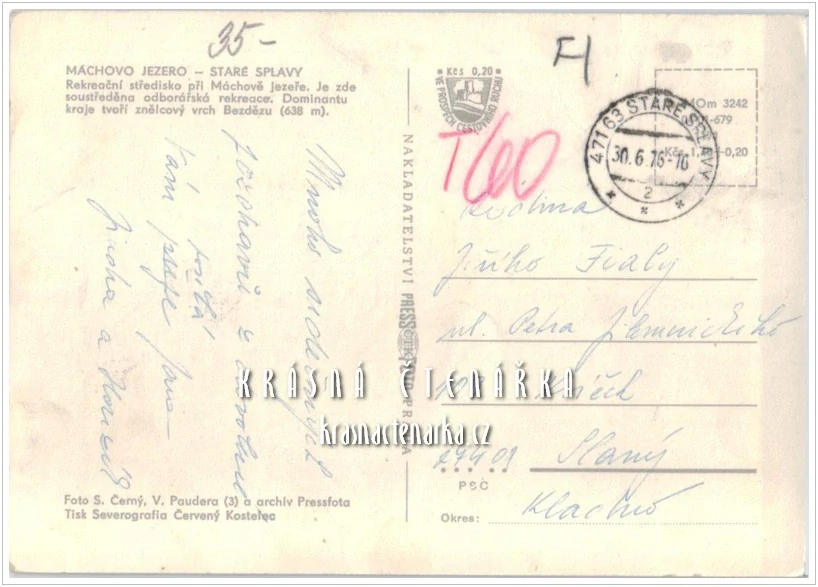 35-
MÁCHOVO JEZERO – STARÉ SPLAVY
Rekreační středisko při Máchově jezeře. Je zde
soustředěna odborářská rekreace. Dominantu
kraje tvoří znělcový vrch Bezdězu (638 m).
Mnoho srdečných
pozdravů z
Vám
Jiřina a
Foto S. Černý, V. Paudera (3) a archiv Pressfota
Tisk Severografia Červený Kostelec
NAKLADATELSTVÍ PRESSFOTO PRAHA
Kčs 0,20
VE PROSPĚCH CESTOVNÍHO RUCHU
FI
T60
3242
-679
Kčs 1, -0,20
471 63 STARÉ SPLAVY
30.6.76-16
2
Rodina
Jiřího Fialy
ul. Petra Jilemnického
27401 Slaný
PSČ
Okres: Kladno
KRÁSNÁ ČTENÁŘKA
krasnactenarka.cz